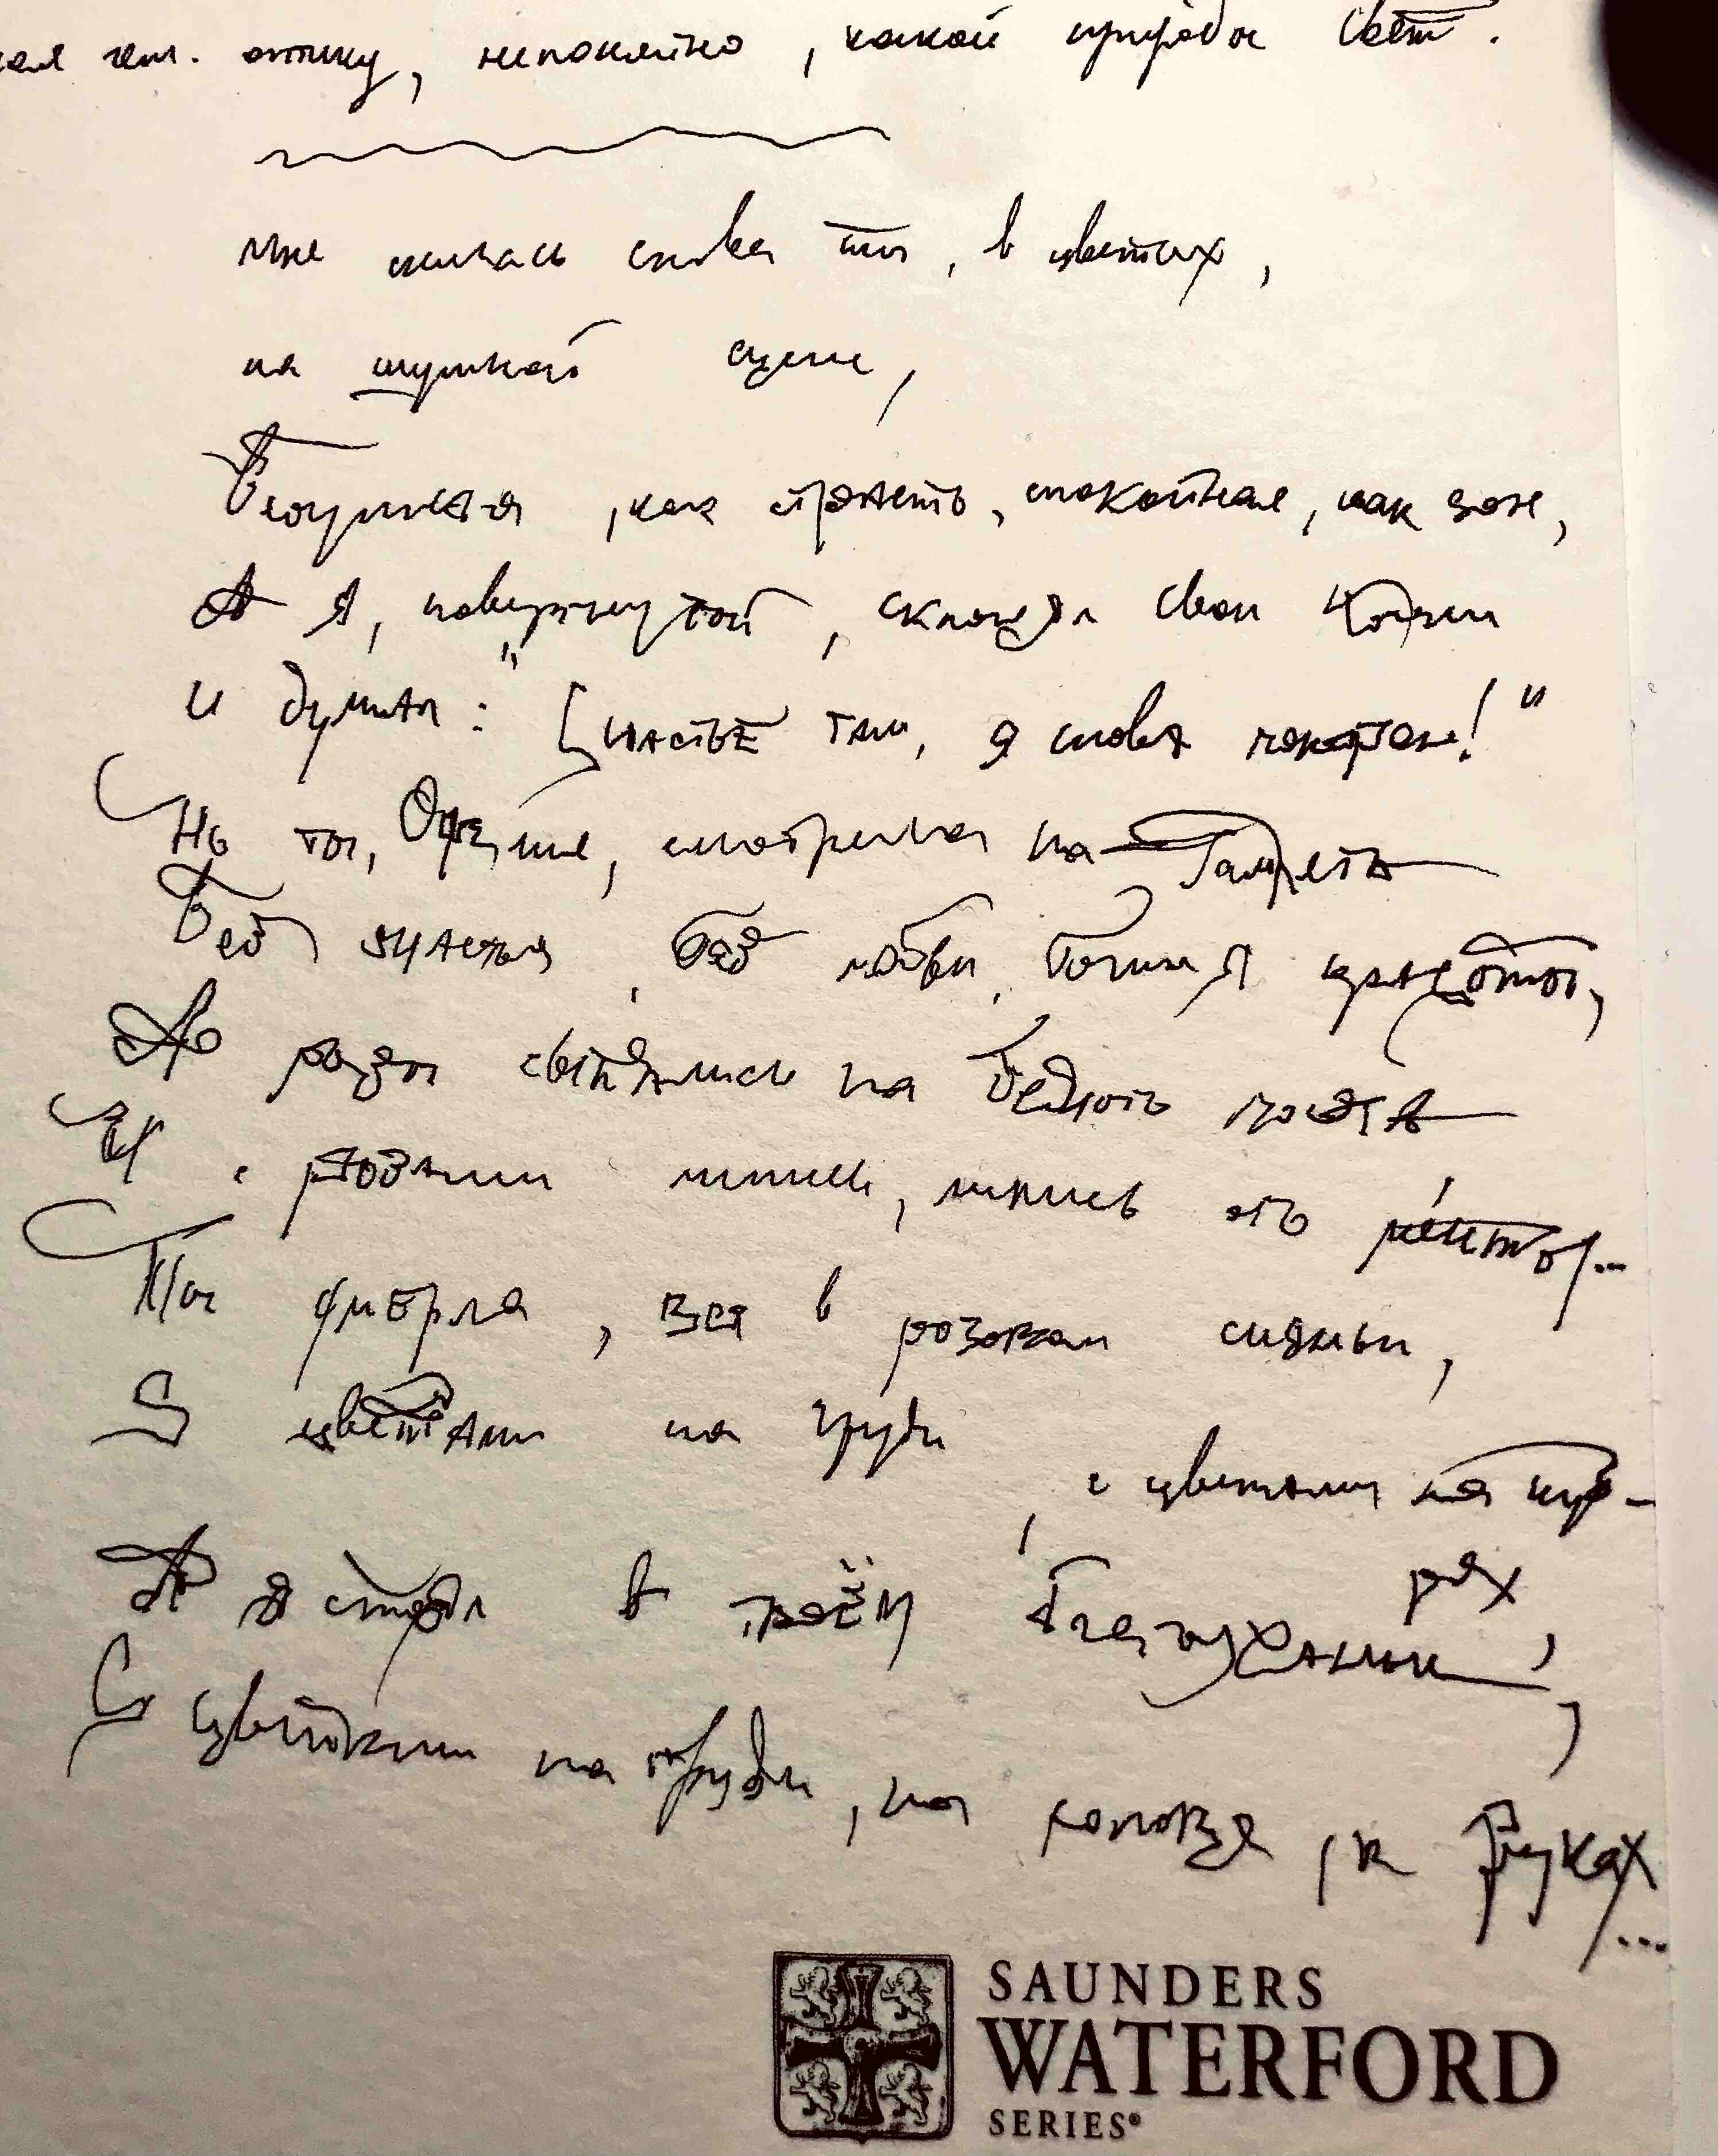 оптику, непонятно, какой природы свет.
Мне снилась снова ты, в цветах,
на шумной сцене,
Безумная, как страсть, спокойная, как сон,
А я, повергнутой, склонял свои колени
И думал: "Счастье там, я снова покорен!"
Но ты, Офелия, смотрела на Гамлета
Без счастья, без любви, богиня красоты,
А розы сыпались на бедного поэта
И с розами лились, лились его мечты...
Ты умерла, вся в розовом сияньи,
С цветами на груди
, с цветами на куд-
рях,
А я стоял в твоём благоуханьи,
С цветами на груди, на голове, в руках
...
SAUNDERS
WATERFORD
SERIES®